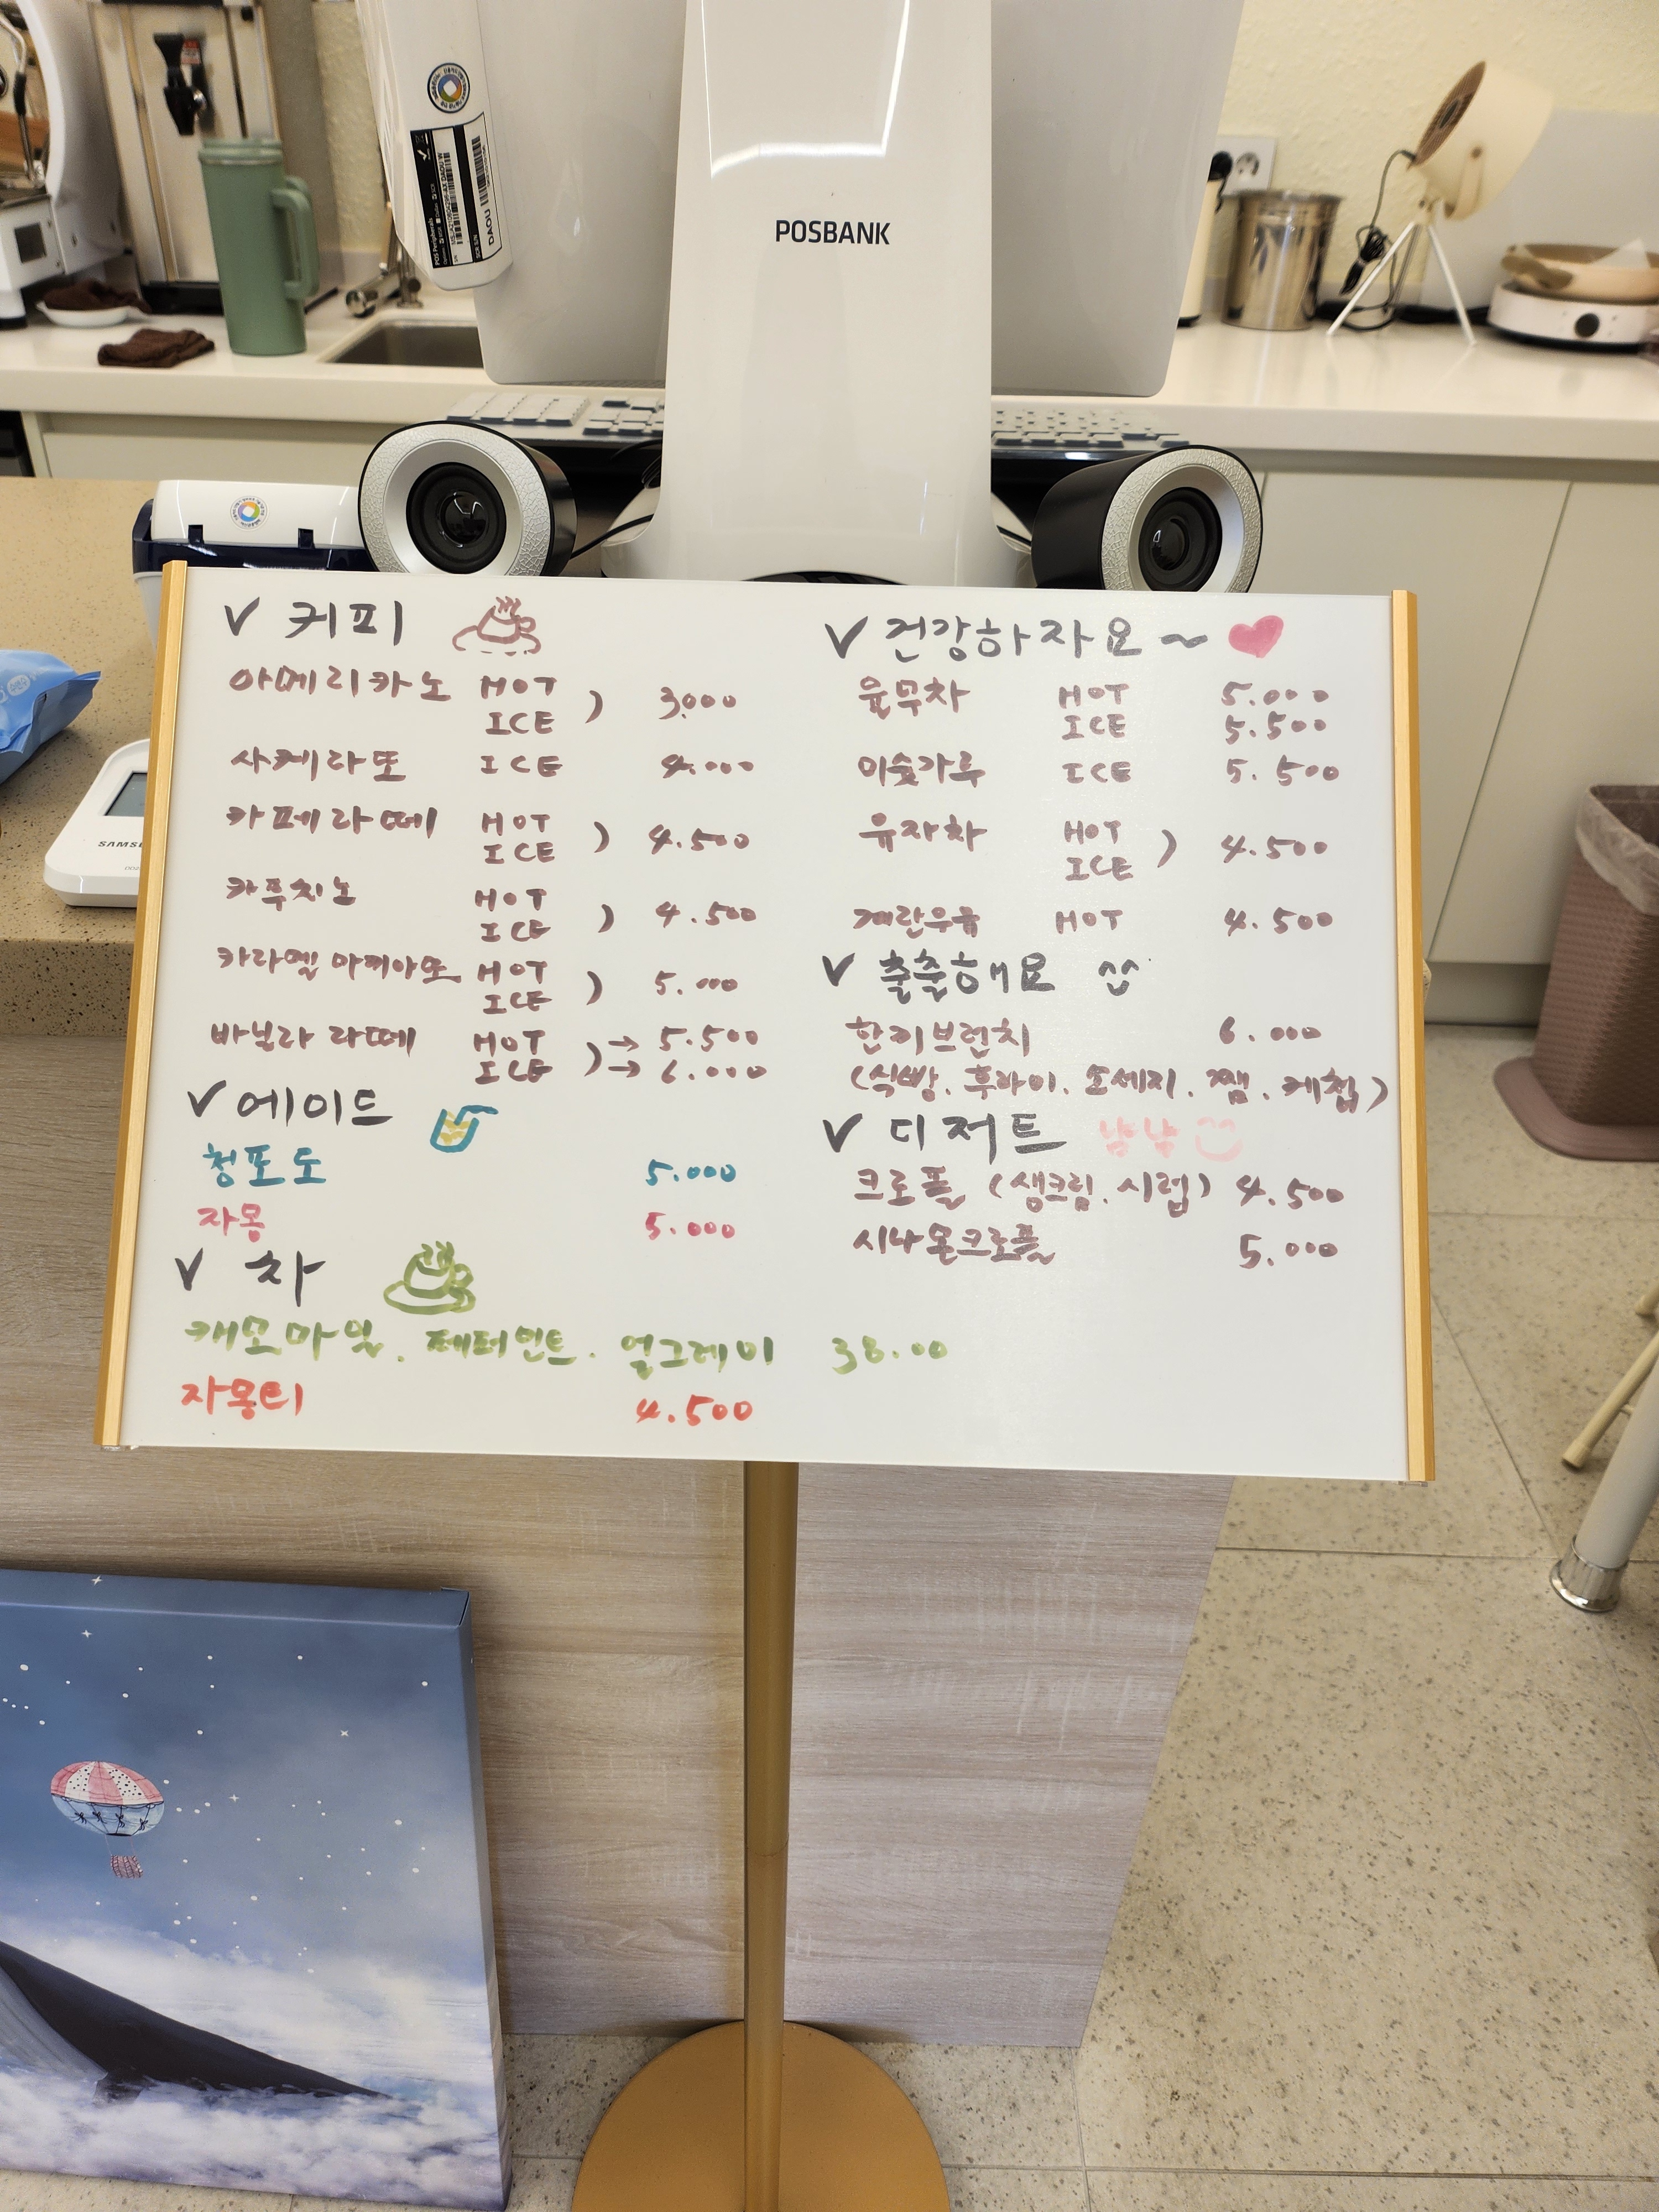 POSBANK
DAOU
SAMS
✓ 커피
아메리카노 HOT
ICE ) 3,000
사케라또 ICE 4.000
카페라떼 HOT
ICE ) 4.500
카푸치노 HOT
ICE ) 4.500
카라멜 마끼아또 HOT
ICE ) 5.000
바닐라 라떼 HOT ) → 5.500
ICE → 6.000
✓ 에이드
청포도 5.000
자몽 5.000
✓ 차
캐모마일. 페퍼민트. 얼그레이 38.00
자몽티 4.500
✓ 건강하자요~
율무차 HOT 5.000
ICE 5.500
미숫가루 ICE 5.500
유자차 HOT
ICE ) 4.500
계란우유 HOT 4.500
✓ 출출해요
한끼브런치 6.000
(식빵. 후라이. 소세지. 쨈. 케첩)
✓ 디저트 냠냠
크로플 (생크림. 시럽) 4.500
시나몬크로플 5.000